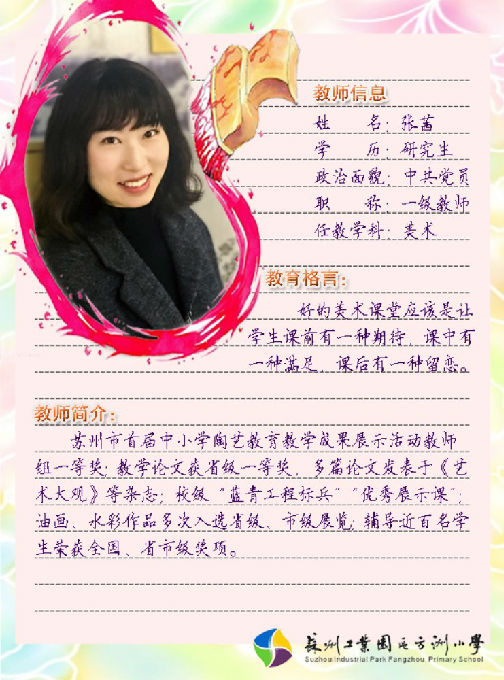 教师信息
姓 名：张茜
学 历：研究生
政治面貌：中共党员
职 称：一级教师
任教学科：美术
教育格言：
好的美术课堂应该是让
学生课前有一种期待，课中有
一种满足，课后有一种留恋。
教师简介：
苏州市首届中小学陶艺教育教学成果展示活动教师
组一等奖；教学论文获省级一等奖，多篇论文发表于《艺
术大观》等杂志；校级“蓝青工程标兵”“优秀展示课”；
油画、水彩作品多次入选省级、市级展览；辅导近百名学
生荣获全国、省市级奖项。
苏州工业园区方洲小學
Suzhou Industrial Park Fangzhou Primary School